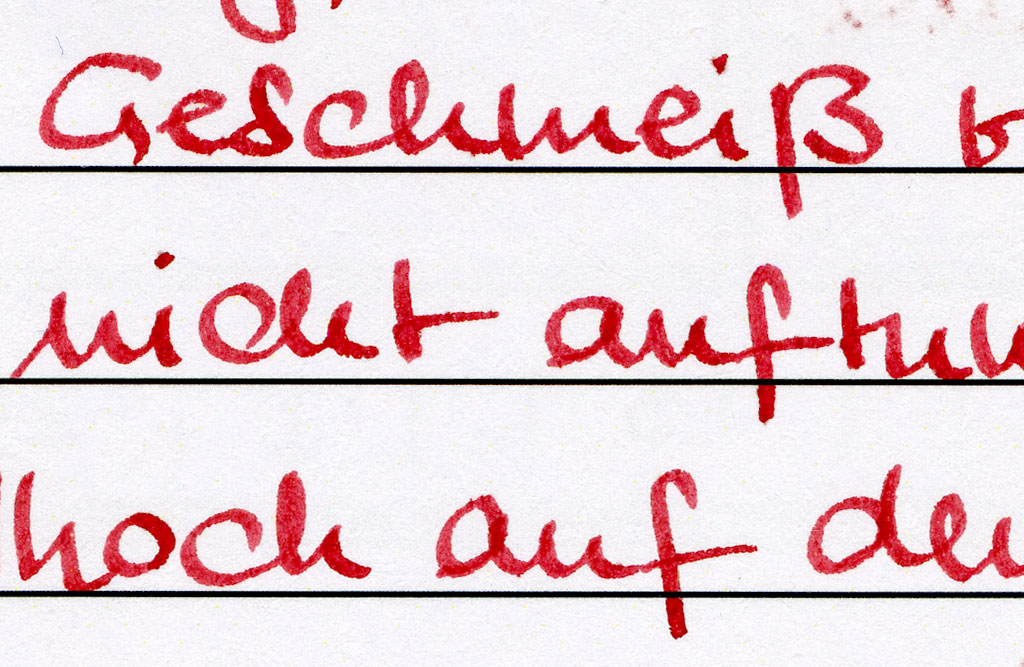 Geschmeiß
nicht auftun
hoch auf